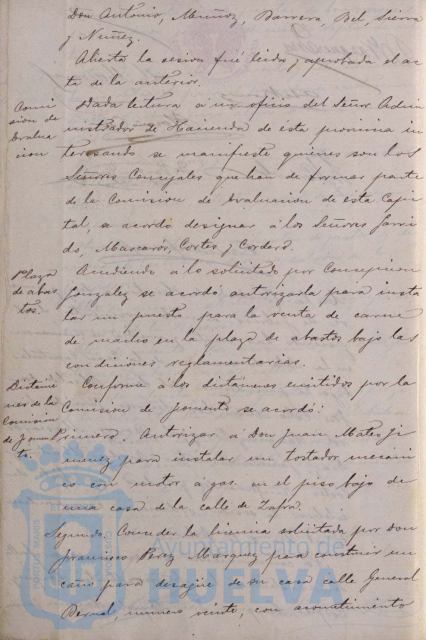 Don Antonio, Muñoz, Barrera, Bel, Sierra
y Nuñez.
Abierta la sesion fué leida y aprobada el ac
ta de la anterior.
Comi
sion de
Evalua
cion
Dada lectura á un oficio del Señor Admi
nistrador de Hacienda de esta provincia in
teresando se manifieste quienes son los
Señores Concejales que han de formar parte
de la Comision de Evaluacion de esta Capi
tal, se acordó designar á los Señores Garri
do, Mascarós, Cortés y Cordero.
Plaza
de abas
tos.
Accediendo á lo solicitado por
Gonzalez se acordó autorizarla para insta
lar un puesto para la venta de carne
de macho en la plaza de abastos bajo las
condiciones reglamentarias.
Dictáme
nes de la
Comision
de Fomen
to.
Conforme á los dictámenes emitidos por la
Comision de fomento se acordó:
Primero. Autorizar á Don Juan Mateo Ji
menez para instalar un tostador mecani
co con motor á gas en el piso bajo de
una casa de la calle de Zafra.
Segundo. Conceder la licencia solicitada por Don
Francisco Perez Marquez para construir un
caño para desagüe de su casa calle General
Bernal, número veinte, con acometimiento
Ayuntamiento de
HUELVA